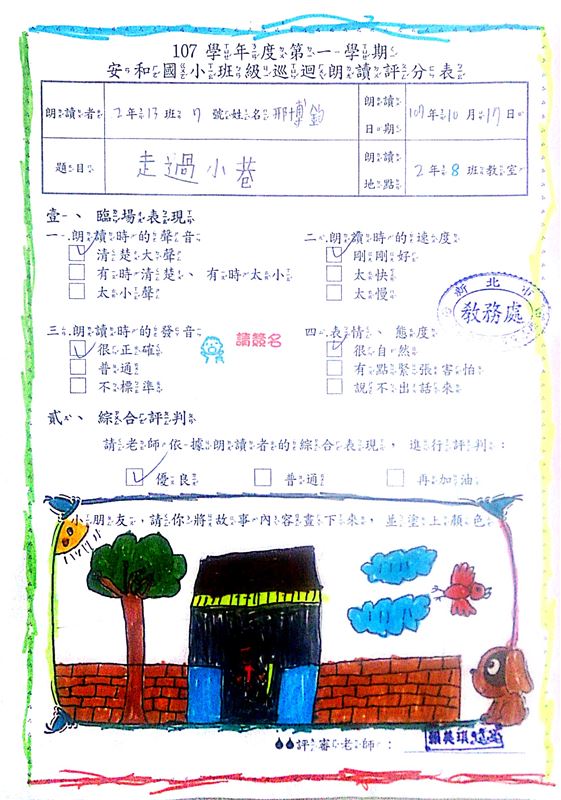 107 學年度第一學期
安和國小班級巡迴朗讀評分表
朗讀者 2年13班7號姓名邢博鈞 朗讀日期 107年10月17日
題目 走過小巷 朗讀地點 2年8班教室
壹、臨場表現
一.朗讀時的聲音 二.朗讀時的速度
清楚大聲 剛剛好
有時清楚、有時太小 太快
太小聲 太慢
新北市
教務處
三.朗讀時的發音 請簽名 四.表情、態度
很正確 很自然
普通 有點緊張害怕
不標準 說不出話來
貳、綜合評判
請老師依據朗讀者的綜合表現,進行評判:
優良 普通 再加油
小朋友,請你將故事內容畫下來,並塗上顏色
評審老師: